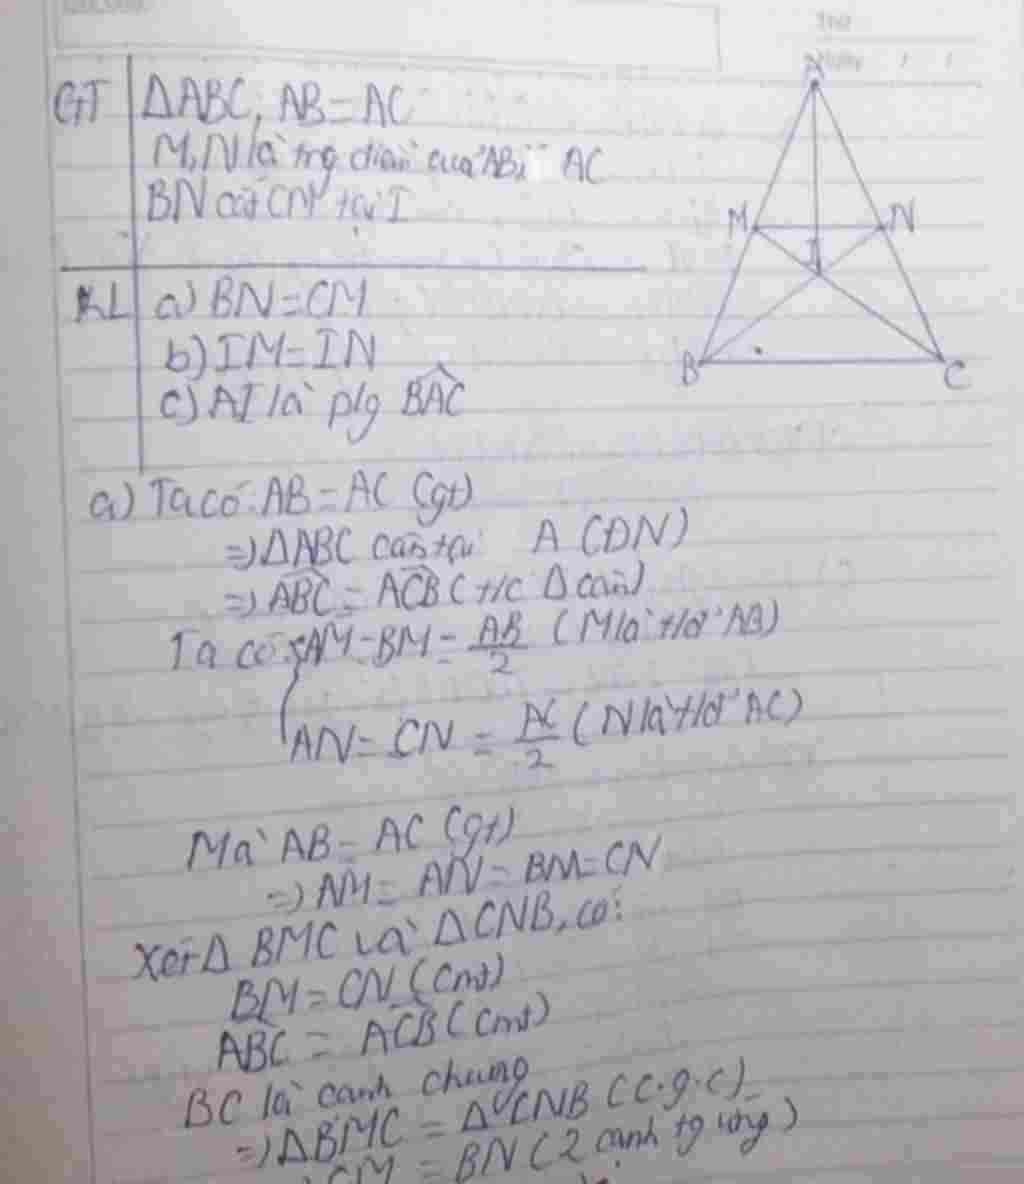 Thứ
Ngày / /
GT ΔABC, AB = AC
M, N là trg điểm của AB, AC
BN cắt CM tại I
KL a) BN = CM
b) IM = IN
c) AI là p/g BAC
A
M N
I
B C
a) Ta có: AB = AC (gt)
=) ΔABC cân tại A (ĐN)
=) ABC = ACB (t/c Δ cân)
Ta có: { AM = BM = AB/2 (M là t/đ AB)
AN = CN = AC/2 (N là t/đ AC)
Mà AB = AC (gt)
=) AM = AN = BM = CN
Xét Δ BMC và ΔCNB, có:
BM = CN (cmt)
ABC = ACB (cmt)
BC là cạnh chung
=) ΔBMC = ΔCNB (c.g.c)
CM = BN (2 cạnh tg ứng)